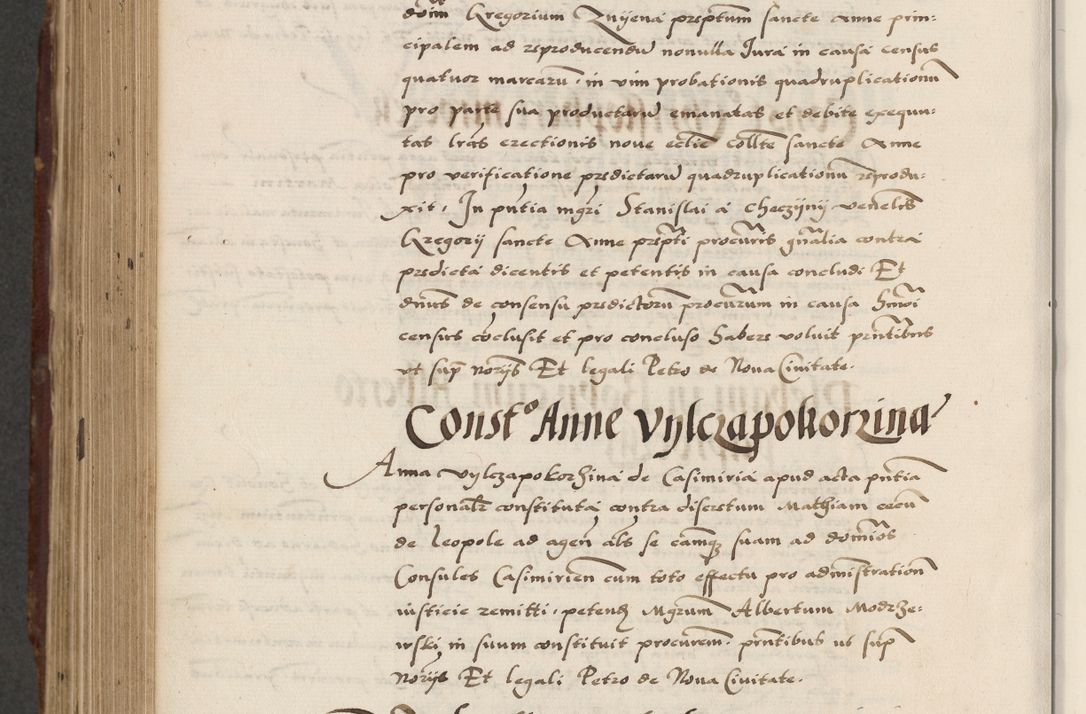 doim Gregorium Znÿena presptum sancte Anne prin:
cipalem ad reproducendu nonulla Jura in causa census
quatuor marcaru in vim probationis quadruplicationu
pro parte sua productaru emanatas et debite exequu:
tas lras erectionis noue eclie collte sancte Anne
pro verificatione predictaru quadruplicationu reprodu:
xit. In pntia mgri Stanislai a Checzÿnÿ venelis
Gregorÿ sancte Anne prespti procuris gnalia contra
predicta dicentis et petentis in causa concludi Et
dnius de consensu predictoru procurum in causa hmoi
census coclusit et pro concluso habere voluit pntibus
vt sup norÿs Et legali Petro de Noua Ciuitate.
Const° Anne Vÿlczapokorzina
Anna vÿlczapokorzina de Casimiria apud acta pntia
personalr constituta contra discretum Mathiam cecu
de Leopole ad agen als se camqz suam ad domios
Consules Casimirien cum toto effectu pro admistration
iusticie remitti, peten Mgrum Albertum Modrze:
wski in suum constituit procurem. pntibus ut sup
norÿs Et legali Petro de Noua Ciuitate.